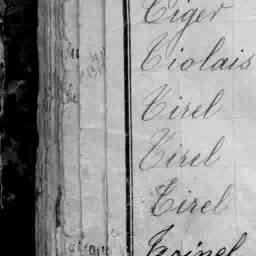 Tiger
Tiolais
Tirel
Tirel
Tirel
Toinel